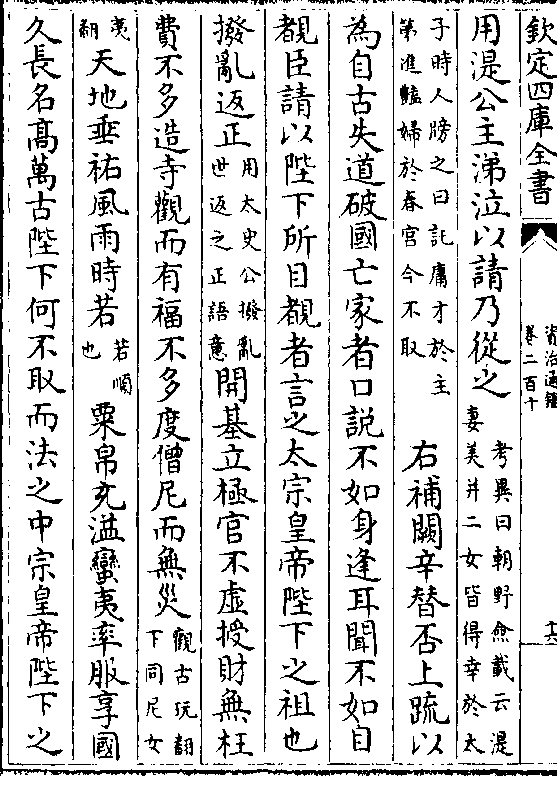 欽定四庫全書
資治通鑑
卷二百十
十六
用湜公主涕泣以請乃從之考異曰朝野僉載云湜妻美并二女皆得幸於太
子時人牓之曰託庸才於主第進豔婦於春宫今不取右補闕辛替否上疏以
為自古失道破國亡家者口説不如身逢耳聞不如目
覩臣請以陛下所目覩者言之太宗皇帝陛下之祖也
撥亂返正用太史公撥亂世返之正語意開基立極官不虛授財無枉
費不多造寺觀而有福不多度僧尼而無災觀古玩翻下同尼女
夷翻天地垂祐風雨時若若順也粟帛充溢蠻夷率服享國
久長名髙萬古陛下何不取而法之中宗皇帝陛下之